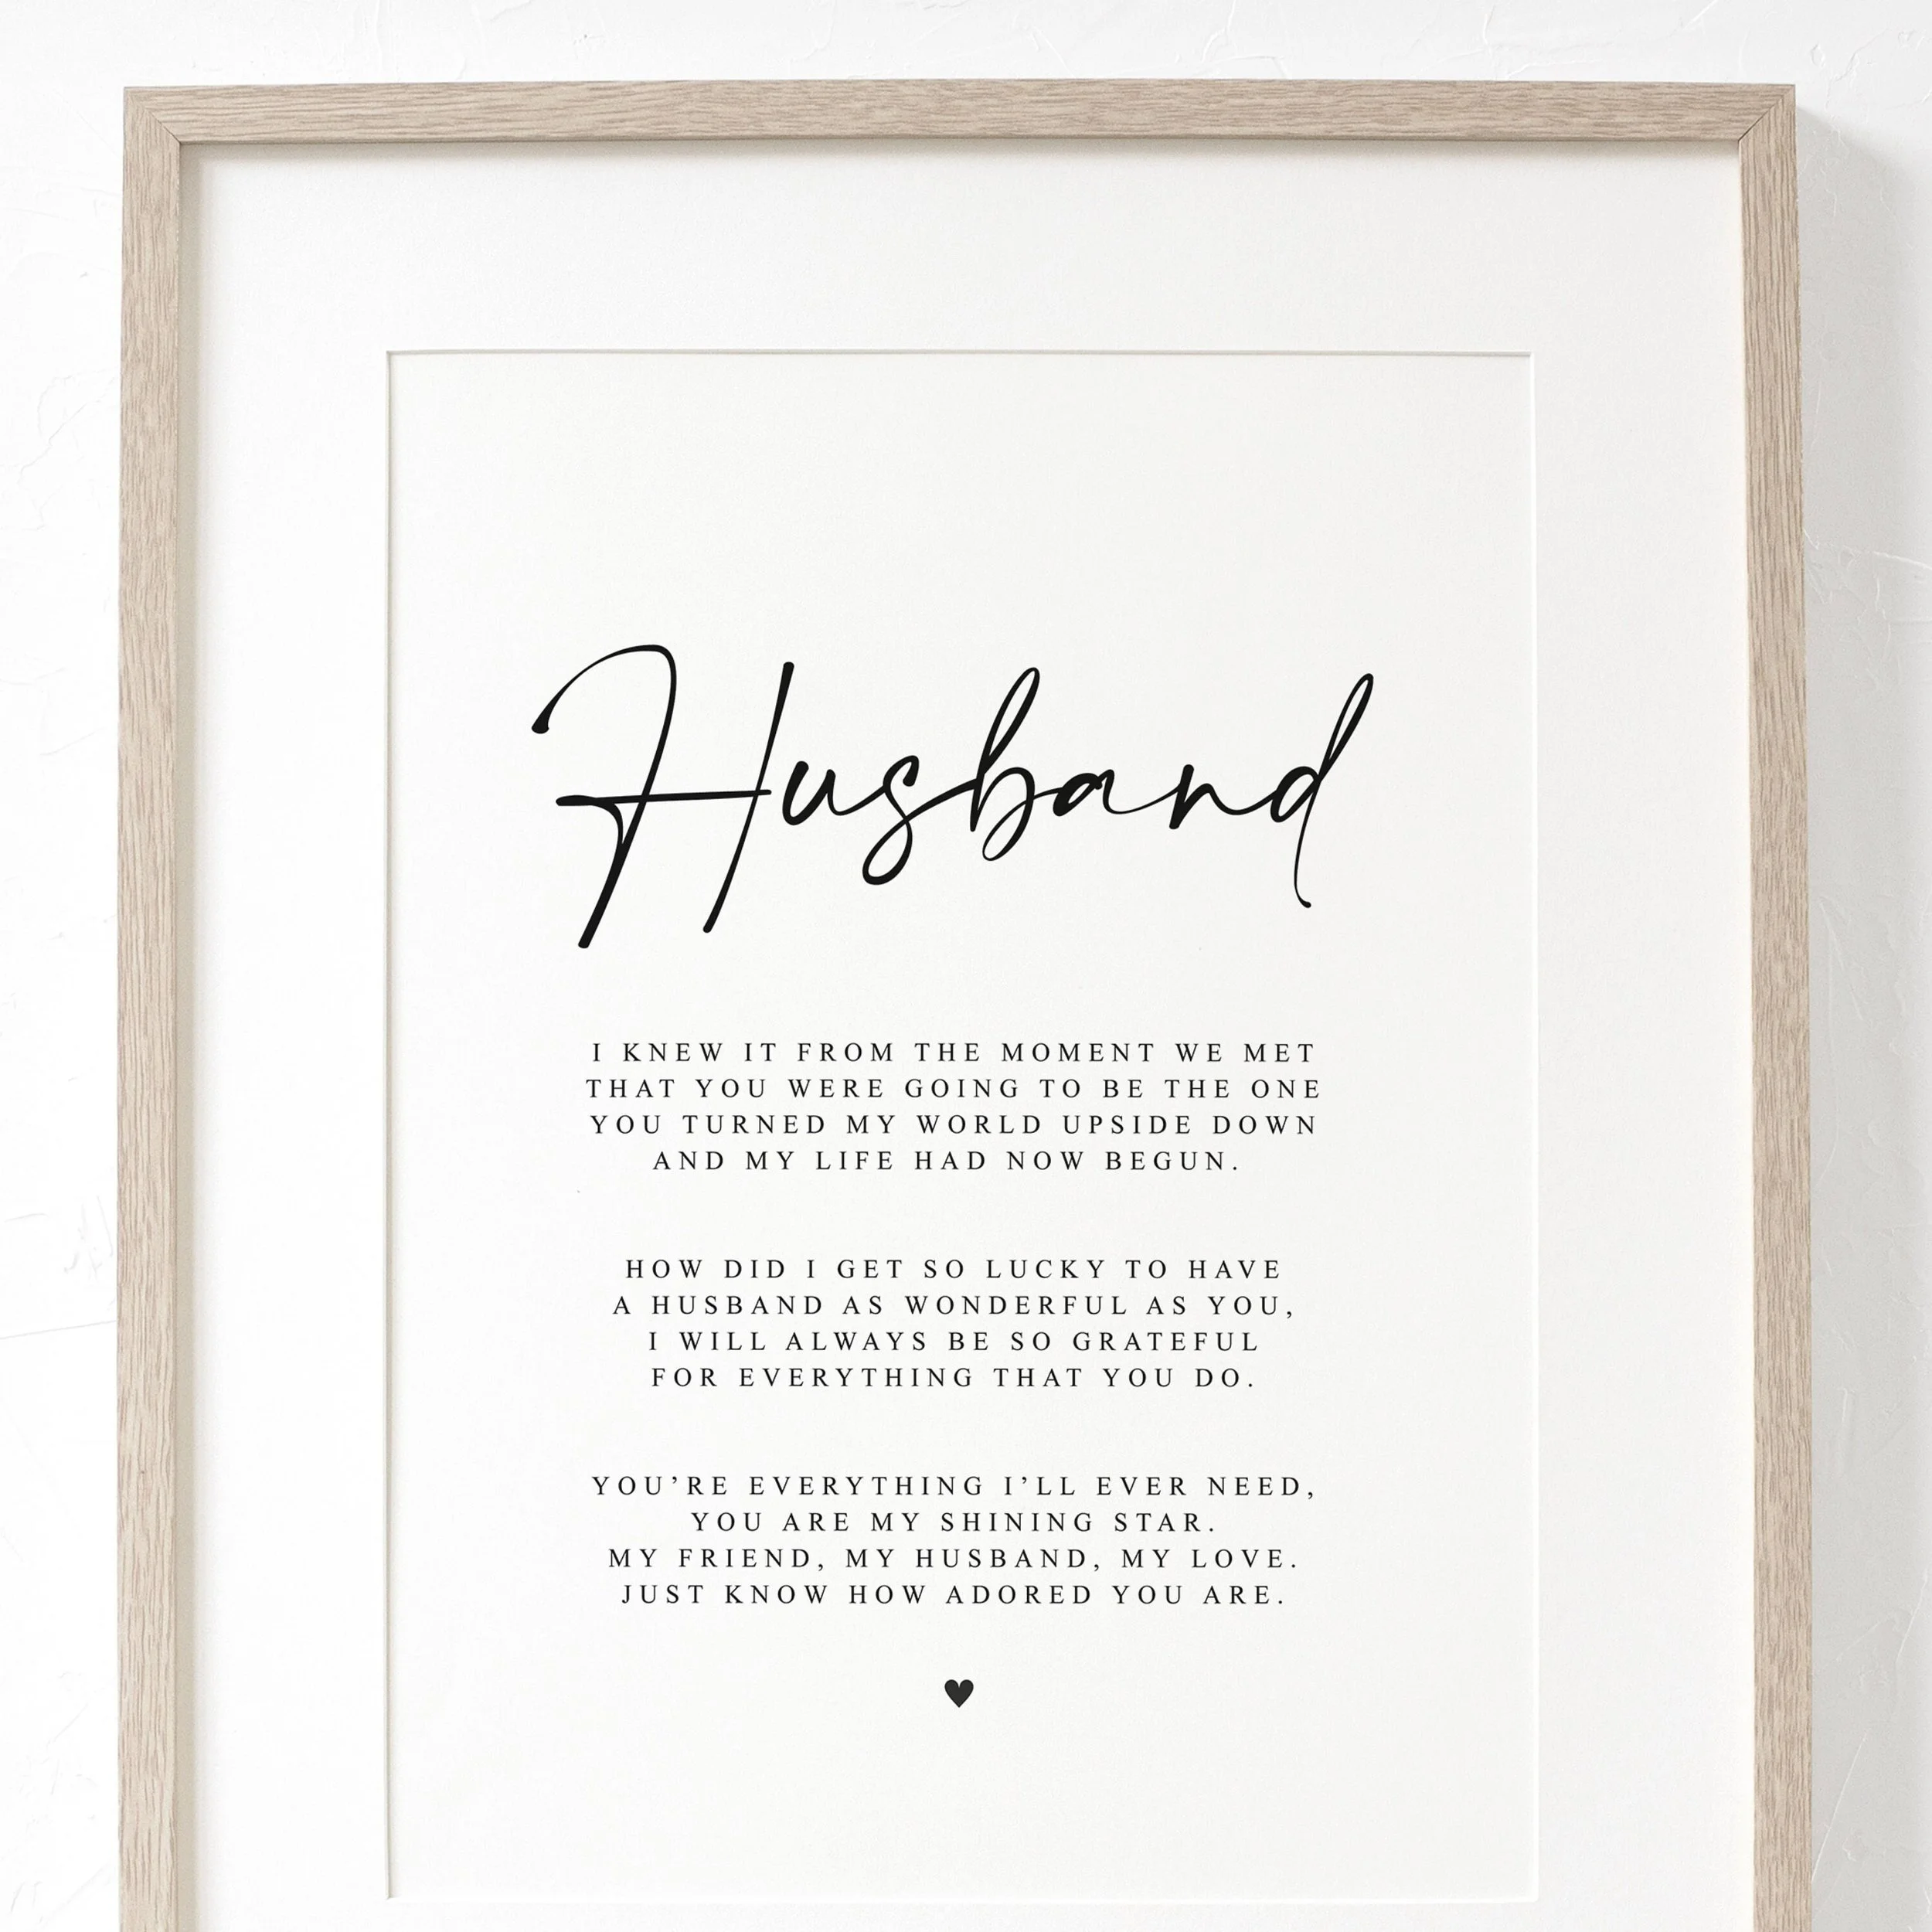 Husband
I KNEW IT FROM THE MOMENT WE MET
THAT YOU WERE GOING TO BE THE ONE
YOU TURNED MY WORLD UPSIDE DOWN
AND MY LIFE HAD NOW BEGUN.
HOW DID I GET SO LUCKY TO HAVE
A HUSBAND AS WONDERFUL AS YOU,
I WILL ALWAYS BE SO GRATEFUL
FOR EVERYTHING THAT YOU DO.
YOU’RE EVERYTHING I’LL EVER NEED,
YOU ARE MY SHINING STAR.
MY FRIEND, MY HUSBAND, MY LOVE.
JUST KNOW HOW ADORED YOU ARE.